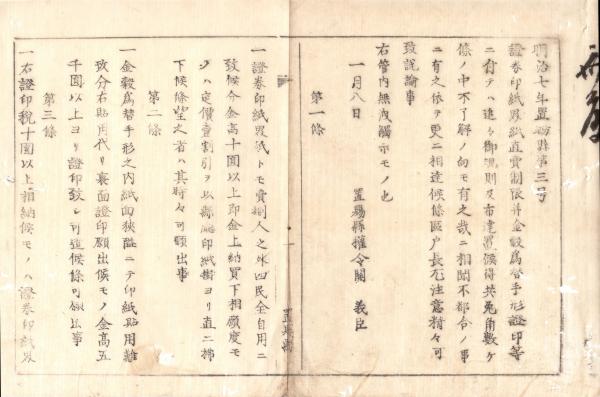 明治七年置賜縣第三号
證券印紙界紙直賣制限并金穀為替手形證印等
ニ付テハ追々御規則及布達置候得共兎角數ケ
條ノ中不了解ノ向モ有之哉ニ相聞不都合ノ事
ニ有之依テ更ニ相達候條區戸長厄注意精々可
致説諭事
右管内無洩觸示モノ也
一月八日
置賜縣権令関 義臣
第一條
一證券印紙界紙トモ賣捌人之外四民全自用ニ
致候分金高十圓以上即金上納買下相願度モ
ノハ定價壹割引ヲ以縣廳印紙掛ヨリ直ニ拂
下候條望之者ハ其時々可願出事
第二條
一金穀為替手形之内紙面狹隘ニテ印紙貼用難
致分右貼用代リ裏面證印願出候モノ金高五
千圓以上ヨリ證印致シ可遣候條可願出事
第三條
一右證印税十圓以上相納候モノハ證券印紙界
置賜縣